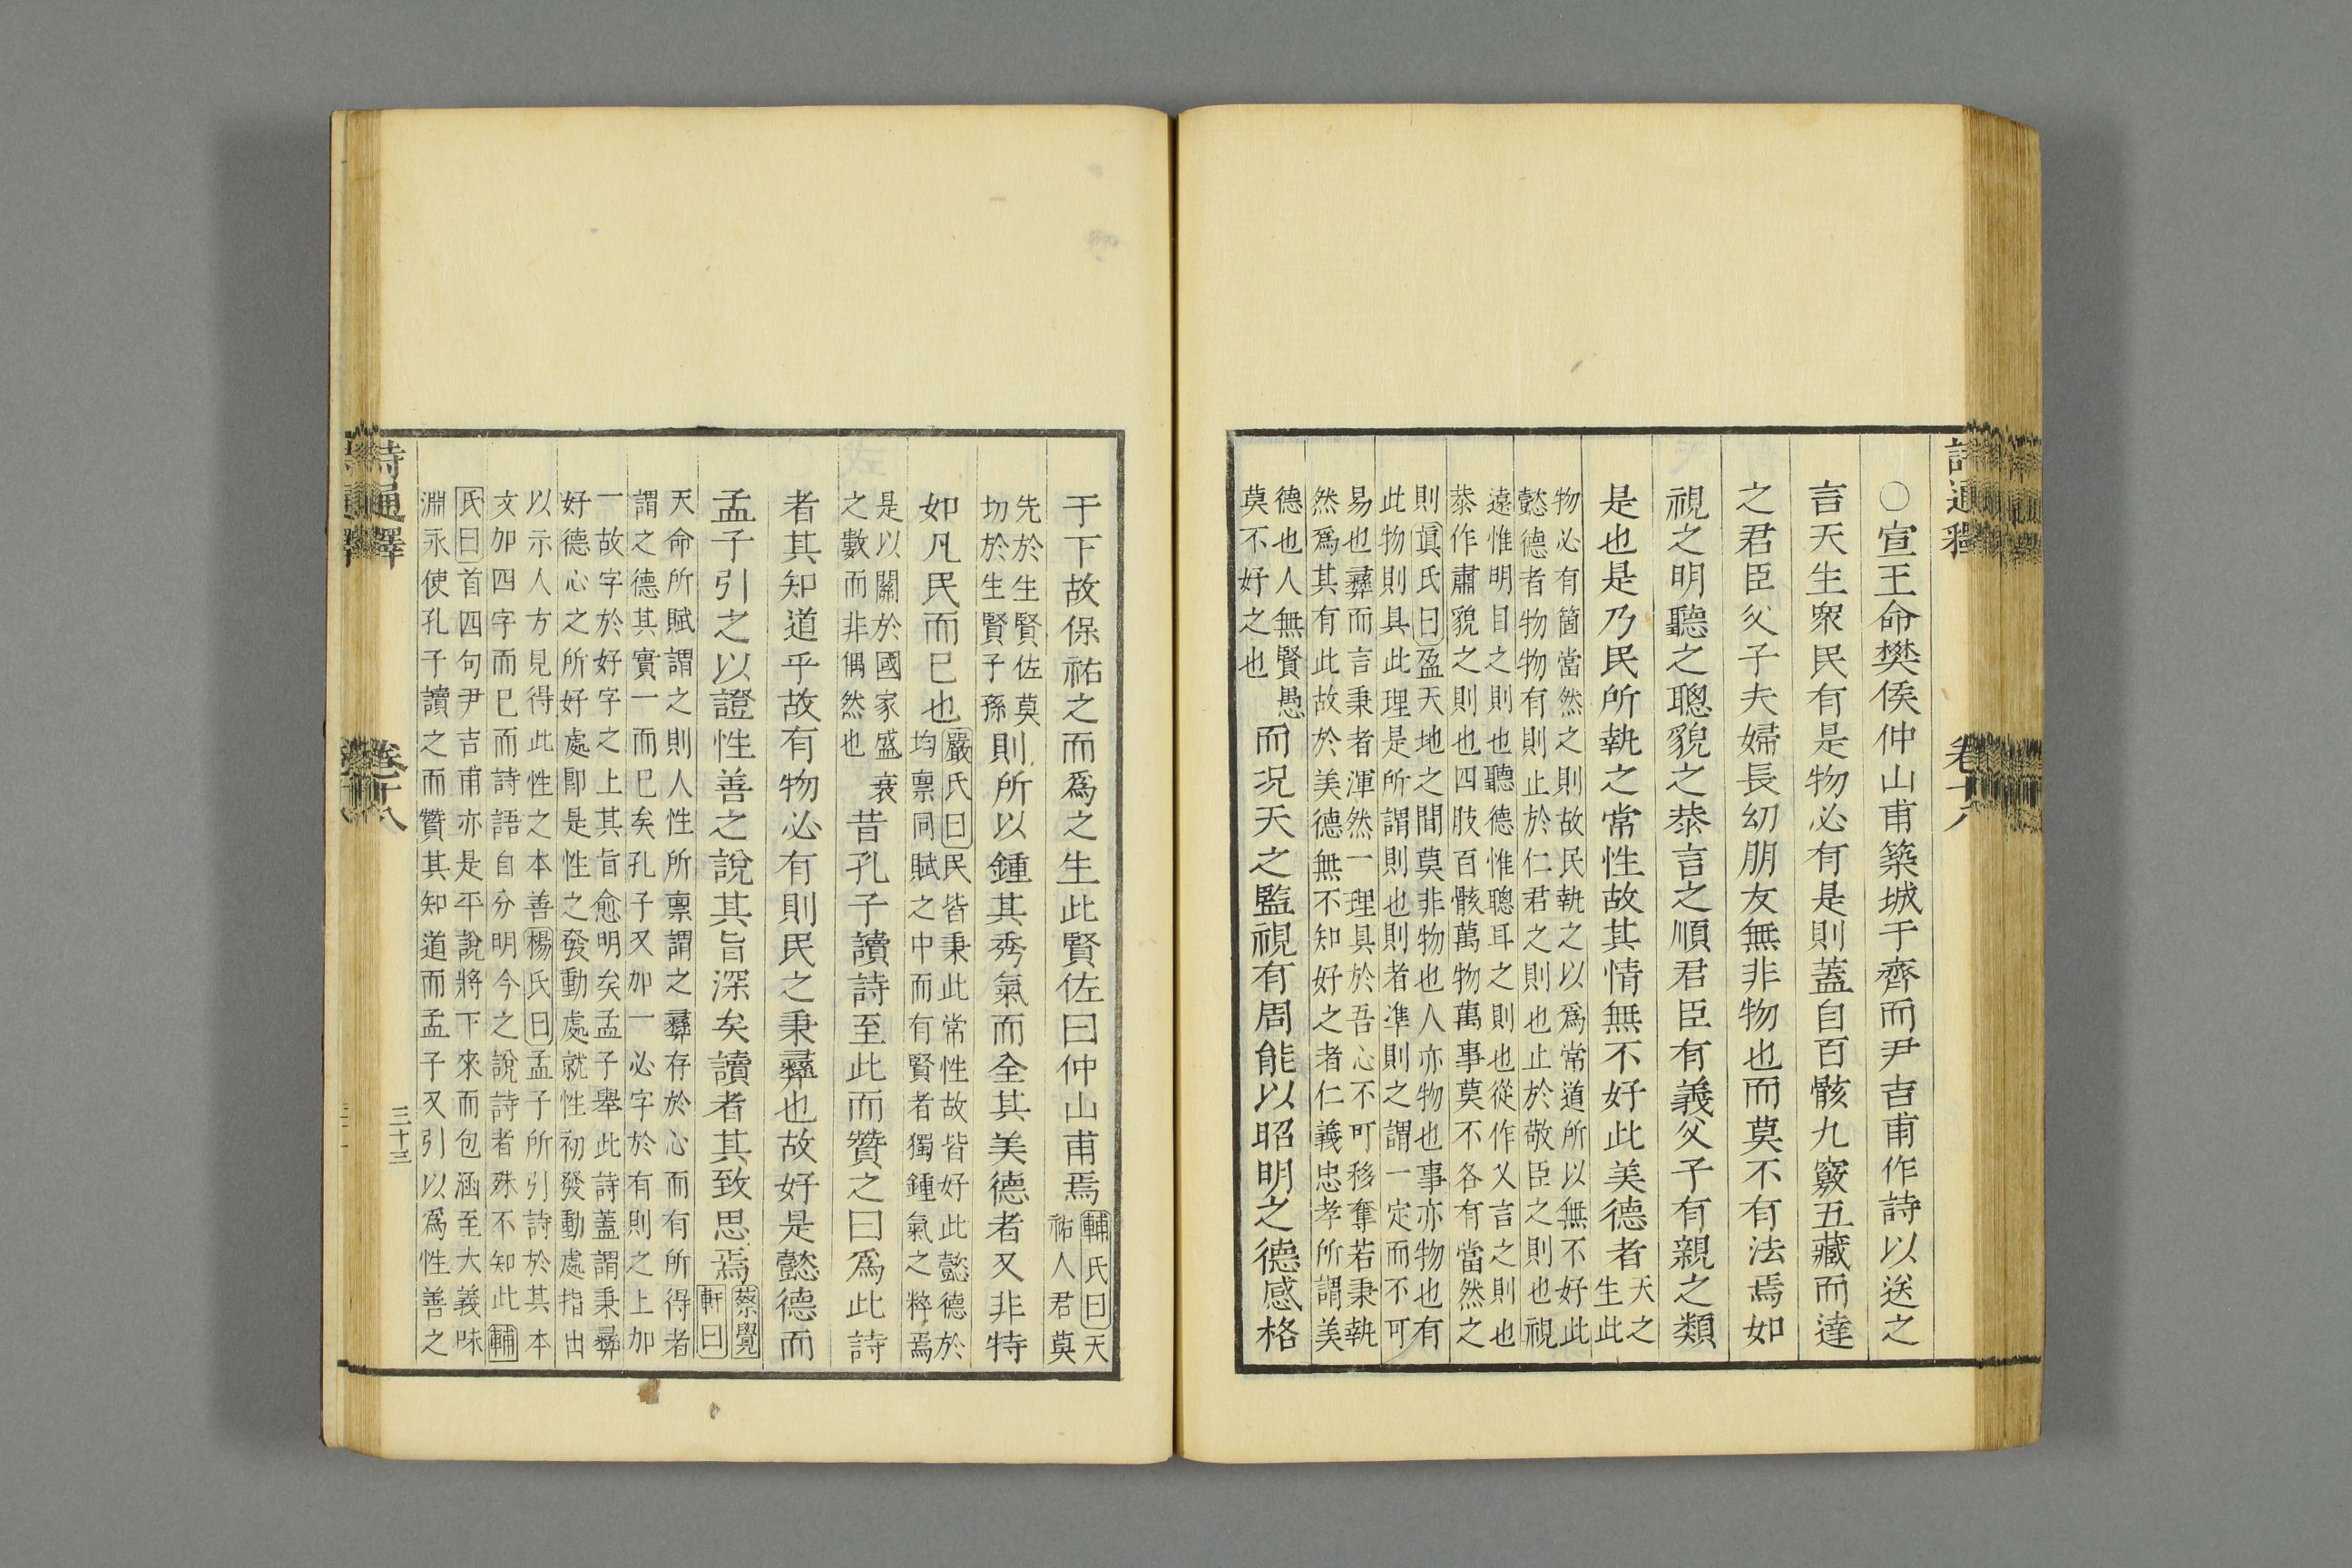 詩通釋
卷十八
○宣王命樊侯仲山甫築城于齊而尹吉甫作詩以送之
言天生衆民有是物必有是則蓋自百骸九竅五藏而達
之君臣父子夫婦長幼朋友無非物也而莫不有法焉如
視之明聽之聰貌之恭言之順君臣有義父子有親之類
是也是乃民所執之常性故其情無不好此美德者
天之
生此
物必有箇當然之則故民執之以爲常道所以無不好此
懿德者物物有則止於仁君之則也止於敬臣之則也視
遠惟明目之則也聽德惟聰耳之則也從作乂言之則也
恭作肅貌之則也四肢百骸萬物萬事莫不各有當然之
則眞氏曰盈天地之間莫非物也人亦物也事亦物也有
此物則具此理是所謂則也則者準則之謂一定而不可
易也彝而言秉者渾然一理具於吾心不可移奪若秉執
然爲其有此故於美德無不知好之者仁義忠孝所謂美
德也人無賢愚
莫不好之也
而况天之監視有周能以昭明之德感格
于下故保祐之而爲之生此賢佐曰仲山甫焉
輔氏曰天
祐人君莫
先於生賢佐莫
切於生賢子孫
則所以鍾其秀氣而全其美德者又非特
如凡民而已也
嚴氏曰民皆秉此常性故皆好此懿德於
均禀同賦之中而有賢者獨鍾氣之粹焉
是以關於國家盛衰
之數而非偶然也
昔孔子讀詩至此而贊之曰爲此詩
者其知道乎故有物必有則民之秉彝也故好是懿德而
孟子引之以證性善之說其旨深矣讀者其致思焉
蔡覺
軒曰
天命所賦謂之則人性所禀謂之彝存於心而有所得者
謂之德其實一而已矣孔子又加一必字於有則之上加
一故字於好字之上其旨愈明矣孟子舉此詩蓋謂秉彝
好德心之所好好處即是性之發動處就性初發動處指出
以示人方見得此性之本善楊氏曰孟子所引詩於其本
文加四字而已而詩語自分明今之說詩者殊不知此輔
氏曰首四句尹吉甫亦是平說將下來而包涵至大義味
淵永使孔子讀之而贊其知道而孟子又引以爲性善之
詩通釋
卷十八
三十三